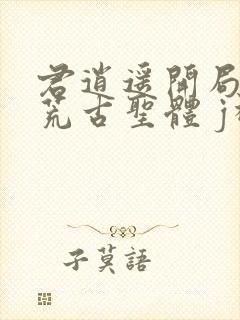 君逍遥開局
荒古聖體 j
子莫語